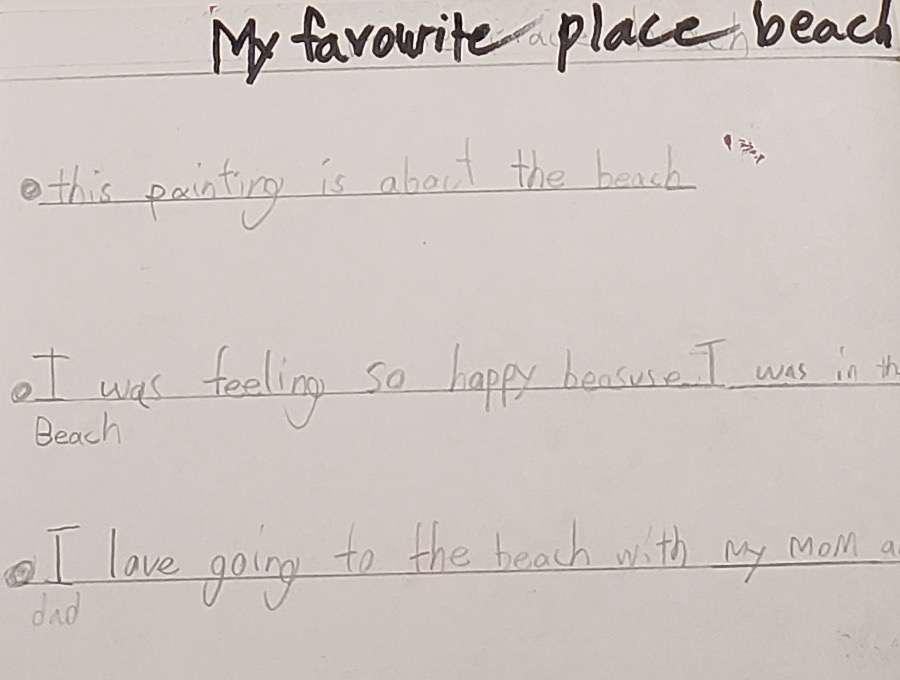 My favourite place beach
this painting is about the beach
I was feeling so happy beasuse I was in th
Beach
I love going to the beach with my mom a
dad